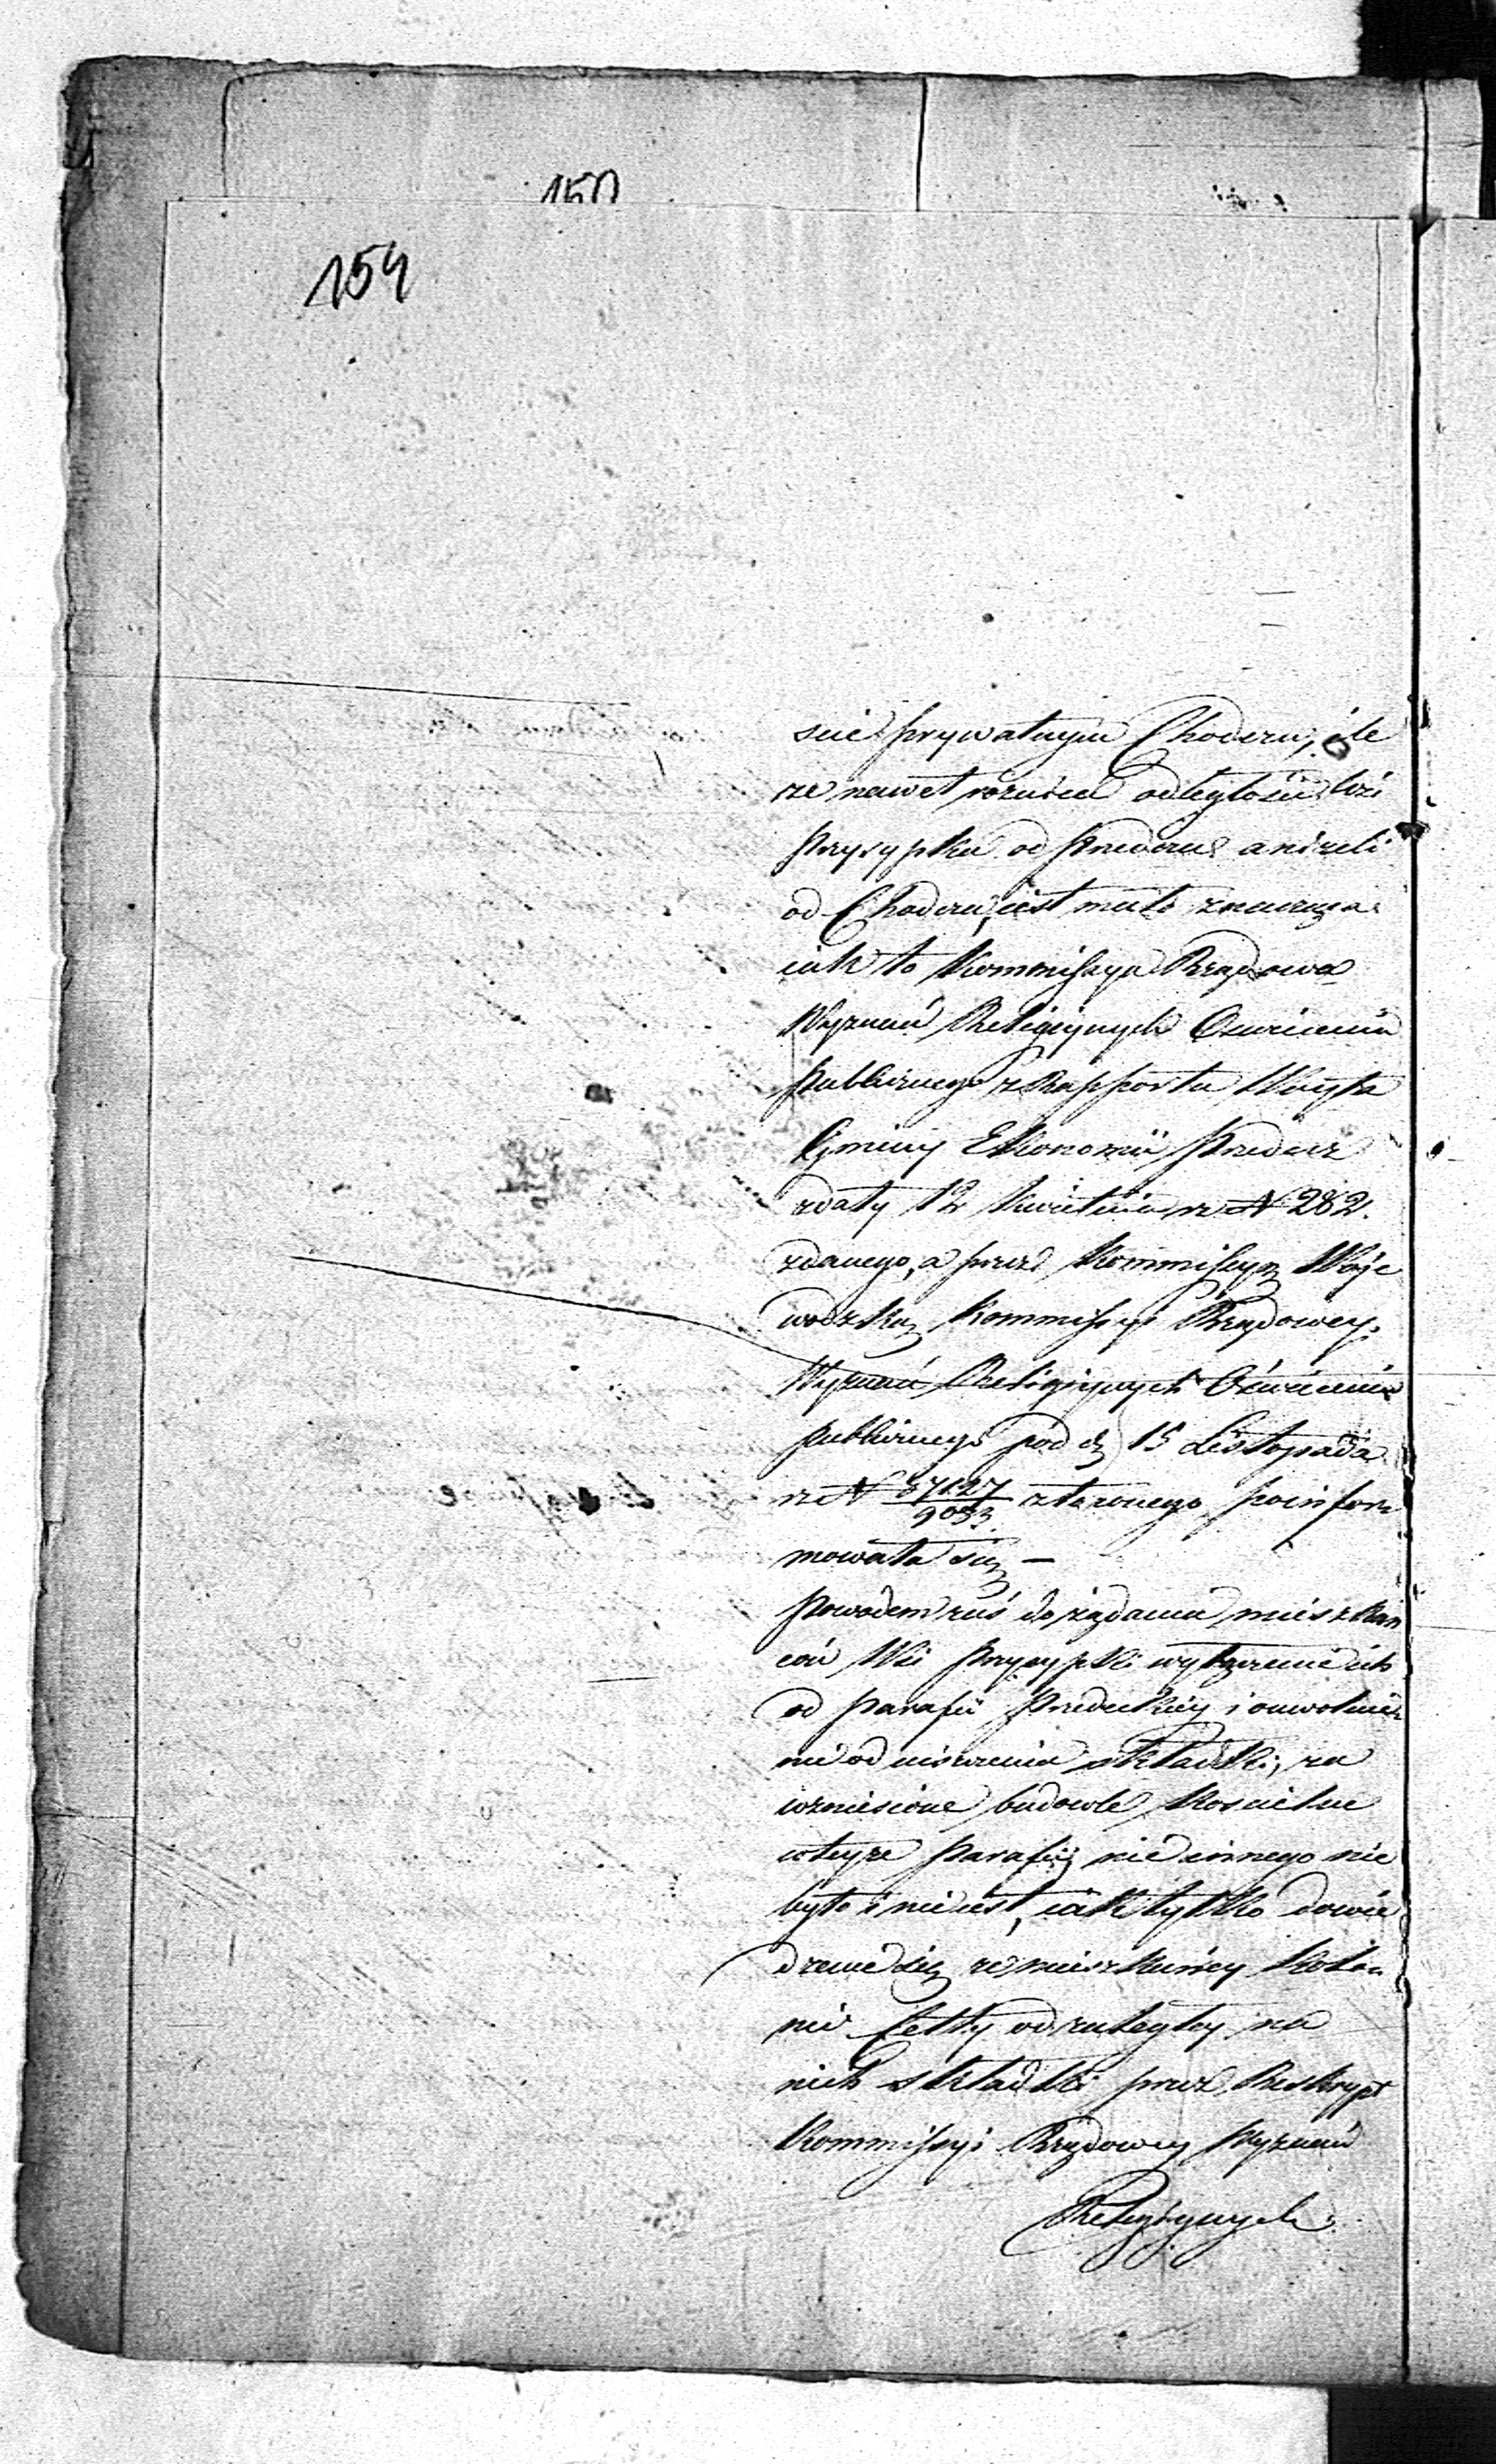 150
154
ście prywatnym Chodczu, ile
że nawet różnica odległości Wsi
Przysypka od Przedcza aniżeli
od Chodcza, iest mało znacząca
iak to Kommissya Rządowa
Wyznań Religiynych Oświecenia
publicznego z Rapportu Woyta
Gminy Ekonomii Przedecz
zdaty 12 Kwietnia r: N 282.
zdanego, a przez Kommissyą Woje
wodzką Kommissyi Rządowey
Wyznań Religiynych Oświecenia
publicznego pod d. 15 Listopada
r: N 57127/9053 złożonego poinfor
mowała się —
Powodem zaś do żądania mieszkań
ców Wsi Przysypki wyłączenie ich
od Parafii Przedeckiey i uwolnie
nie od uiszczenia składki, za
wzniesione budowle Kościelne
wteyże Parafii nic innego nie
było i nie iest, iak tylko dowie
dzenie się że mieszkańcy Kolo
nii od zaległey na
nich składki przez Reskrypt
Kommissyi Rządowey Wyznań
Religiynych